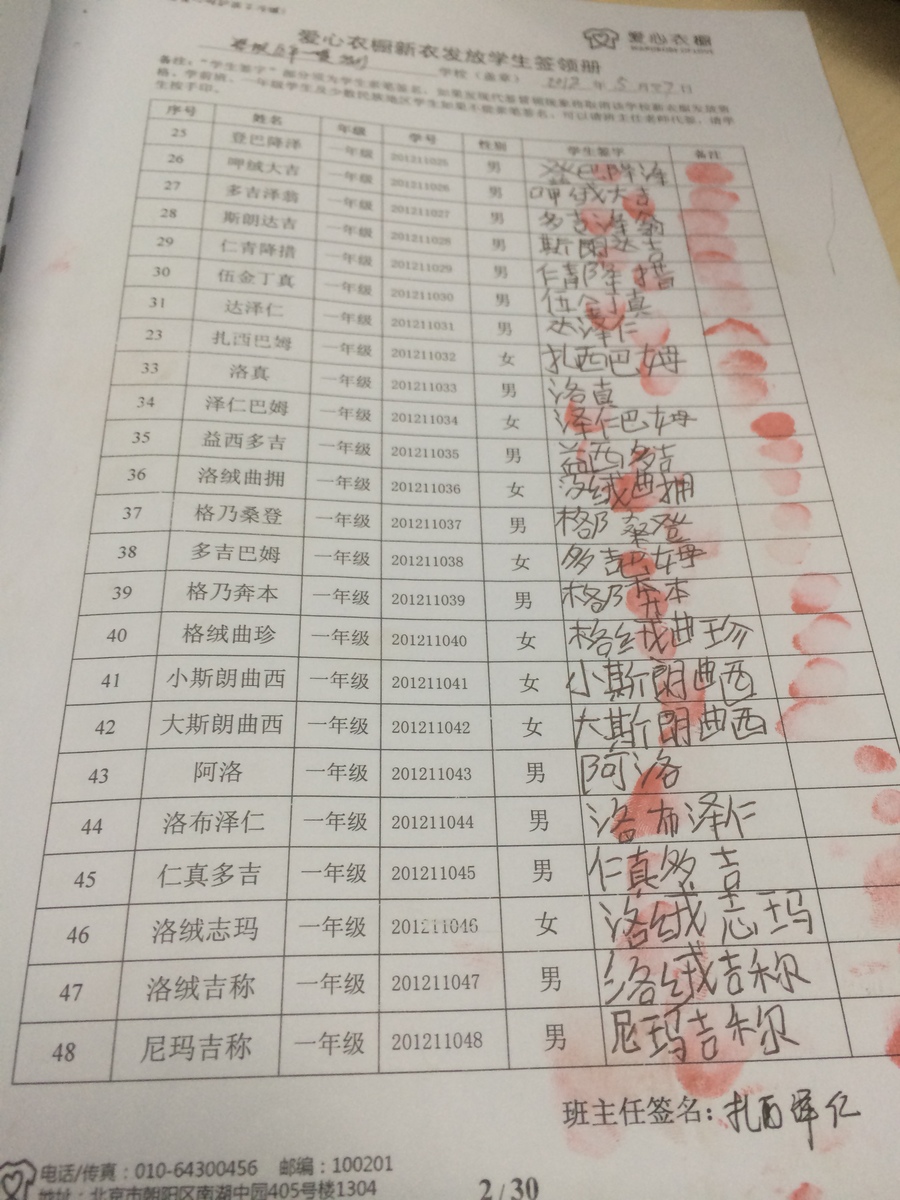 爱心衣橱
爱心衣橱新衣发放学生签领册
学校（盖章） 2013 年 5 月27日
备注：“学生签字”部分须为学生亲笔签名，如果发现代签冒领现象将取消该学校新衣服发放资
格，学前班、一年级学生及少数民族地区学生如果不能亲笔签名，可以请班主任老师代签，请学
生按手印。
序号 姓名 年级 学号 性别 学生签字 备注
25 登巴降泽 一年级 201211025 男 登巴降泽
26 呷绒大吉 一年级 201211026 男 呷绒大吉
27 多吉泽翁 一年级 201211027 男 多吉泽翁
28 斯朗达吉 一年级 201211028 男 斯朗达吉
29 仁青降措 一年级 201211029 男 仁青降措
30 伍金丁真 一年级 201211030 男 伍金丁真
31 达泽仁 一年级 201211031 男 达泽仁
23 扎西巴姆 一年级 201211032 女 扎西巴姆
33 洛真 一年级 201211033 男 洛真
34 泽仁巴姆 一年级 201211034 女 泽仁巴姆
35 益西多吉 一年级 201211035 男 益西多吉
36 洛绒曲拥 一年级 201211036 女 洛绒曲拥
37 格乃桑登 一年级 201211037 男 格乃桑登
38 多吉巴姆 一年级 201211038 女 多吉巴姆
39 格乃奔本 一年级 201211039 男 格乃奔本
40 格绒曲珍 一年级 201211040 女 格绒曲珍
41 小斯朗曲西 一年级 201211041 女 小斯朗曲西
42 大斯朗曲西 一年级 201211042 女 大斯朗曲西
43 阿洛 一年级 201211043 男 阿洛
44 洛布泽仁 一年级 201211044 男 洛布泽仁
45 仁真多吉 一年级 201211045 男 仁真多吉
46 洛绒志玛 一年级 201211046 女 洛绒志玛
47 洛绒吉称 一年级 201211047 男 洛绒吉称
48 尼玛吉称 一年级 201211048 男 尼玛吉称
班主任签名：扎西泽仁
电话/传真：010-64300456 邮编：100201
地址：北京市朝阳区南湖中园405号楼1304
2 / 30